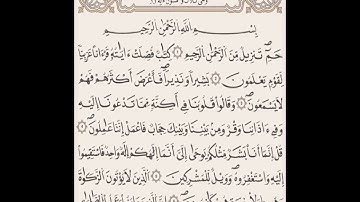 بِسْمِ اللَّهِ الرَّحْمَٰنِ الرَّحِيمِ
حمٓ ۝ تَنزِيلٌ مِّنَ الرَّحْمَٰنِ الرَّحِيمِ ۝ كِتَابٌ فُصِّلَتْ ءَايَاتُهُ قُرْءَانًا عَرَبِيًّا
لِّقَوْمٍ يَعْلَمُونَ ۝ بَشِيرًا وَنَذِيرًا فَأَعْرَضَ أَكْثَرُهُمْ فَهُمْ
لَا يَسْمَعُونَ ۝ وَقَالُوا قُلُوبُنَا فِي أَكِنَّةٍ مِّمَّا تَدْعُونَا إِلَيْهِ
وَفِي ءَاذَانِنَا وَقْرٌ وَمِن بَيْنِنَا وَبَيْنِكَ حِجَابٌ فَاعْمَلْ إِنَّنَا عَامِلُونَ ۝
قُلْ إِنَّمَا أَنَا بَشَرٌ مِّثْلُكُمْ يُوحَىٰ إِلَيَّ أَنَّمَا إِلَٰهُكُمْ إِلَٰهٌ وَاحِدٌ فَاسْتَقِيمُوا
إِلَيْهِ وَاسْتَغْفِرُوهُ وَوَيْلٌ لِّلْمُشْرِكِينَ ۝ الَّذِينَ لَا يُؤْتُونَ الزَّكَاةَ